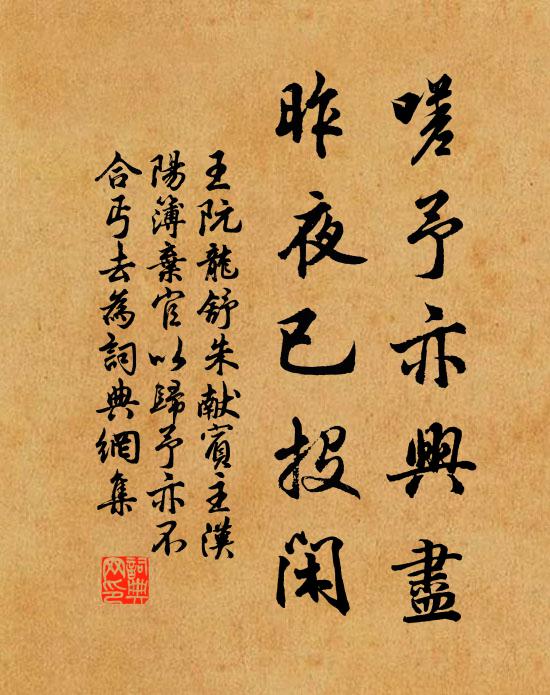 嗟予亦興盡
昨夜已投閑
王阮龍舒朱献賓主漢
陽簿棄官以歸予亦不
合丐去為詞典網集
詞典
网印